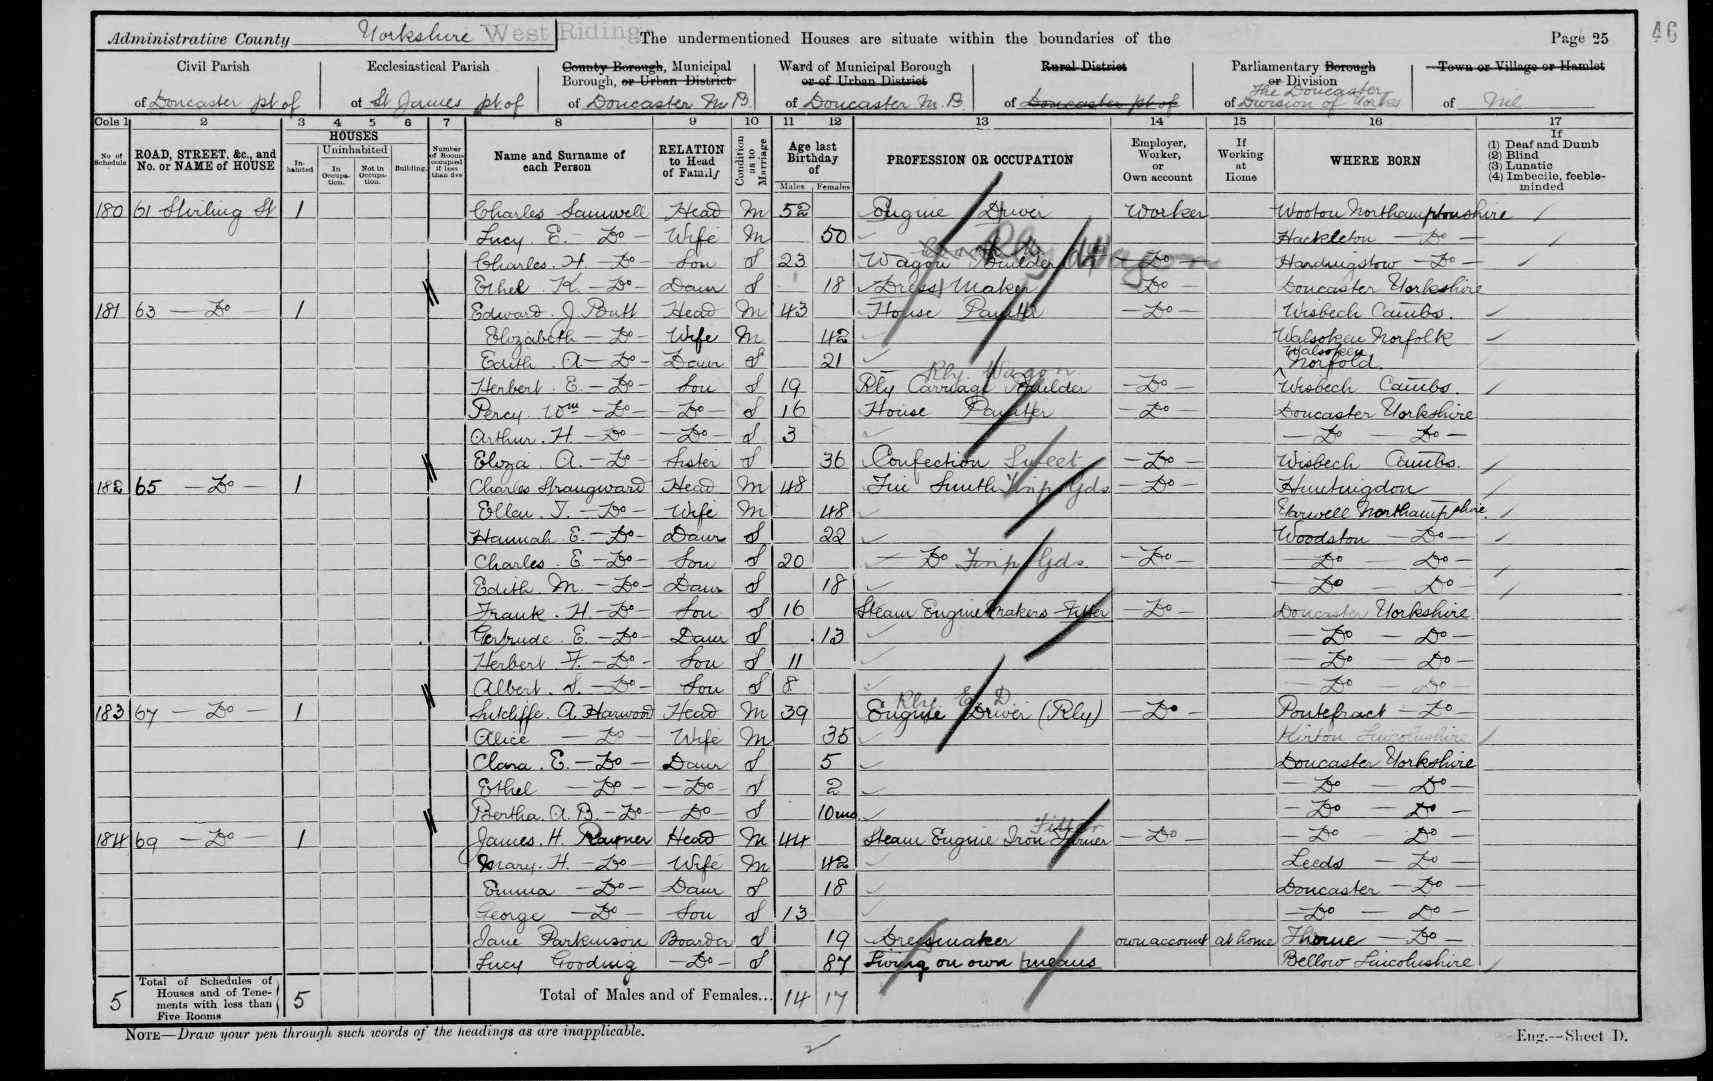 46
Administrative County Yorkshire West Riding The undermentioned Houses are situate within the boundaries of the Page 25
Civil Parish of Doncaster pt of
Ecclesiastical Parish of St James pt of
County Borough, Municipal Borough, or Urban District of Doncaster M.B.
Ward of Municipal Borough or of Urban District of Doncaster M.B.
Rural District of Doncaster pt of
Parliamentary Borough or Division of The Doncaster Division of Yorks
Town or Village or Hamlet of Nil
Cols 1 2 3 4 5 6 7 8 9 10 11 12 13 14 15 16 17
No of Schedule
ROAD, STREET, &c., and No. or NAME of HOUSE
HOUSES
Inhabited
Uninhabited
In Occupation.
Not in Occupation.
Building.
Number of Rooms occupied if less than five
Name and Surname of each Person
RELATION to Head of Family
Condition as to Marriage
Age last Birthday of
Males Females
PROFESSION OR OCCUPATION
Employer, Worker, or Own account
If Working at Home
WHERE BORN
If (1) Deaf and Dumb (2) Blind (3) Lunatic (4) Imbecile, feeble-minded
180 61 Stirling St 1 Charles Samwell Head M 52 Engine Driver Worker Wooton Northamptonshire
Lucy. E. — Do — Wife M 50 Hackleton — Do —
Charles. H — Do — Son S 23 Wagon Builder Rly Wagon — Do — Hardingstow — Do —
Ethel K. — Do — Daur S 18 Dress Maker — Do — Doncaster Yorkshire
181 63 — Do — 1 Edward. J. Butt Head M 43 House Painter — Do — Wisbech Cambs.
Elizabeth — Do — Wife M 42 Walsoken Norfolk
Edith A — Do — Daur S 21 Walsoken Norfold.
Herbert. E. — Do — Son S 19 Rly Carriage Builder Rly. Wagon — Do — Wisbech Cambs
Percy. Wm — Do — — Do — S 16 House Painter — Do — Doncaster Yorkshire
Arthur. H. — Do — — Do — S 3 — Do — Do —
Eliza. A. — Do — Sister S 36 Confection Sweet — Do — Wisbech Cambs.
182 65 — Do — 1 Charles Strangward Head M 48 Tin Smith Tinp Gds — Do — Huntingdon
Ellen. F. — Do — Wife M 48 Northamptshire
Hannah E. — Do — Daur S 22 Woodston — Do —
Charles. E — Do — Son S 20 — Do Tinp Gds — Do — — Do — Do —
Edith. M. — Do — Daur S 18 — Do Do —
Frank. H — Do — Son S 16 Steam Engine Makers Fitter — Do — Doncaster Yorkshire
Gertrude. E. — Do — Daur S 13 — Do — Do —
Herbert. F. — Do — Son S 11 — Do — Do —
Albert. S. — Do — Son S 8 — Do — Do —
183 67 — Do — 1 Sutcliffe. A. Harwood Head M 39 Engine Driver (Rly) Rly. E. D. — Do — Pontefract — Do —
Alice — Do — Wife M 35 Kirton Lincolnshire
Clara. E. — Do — Daur S 5 Doncaster Yorkshire
Ethel — Do — — Do — S 2 — Do — Do —
Bertha. A. B. — Do — — Do — S 10mos — Do — Do —
184 69 — Do — 1 James. H. Rayner Head M 44 Steam Engine Iron Turner Fitter — Do — — Do — Do
Mary. H. — Do — Wife M 42 Leeds — Do —
Emma — Do — Daur S 18 Doncaster — Do —
George — Do — Son S 13 — Do — Do —
Jane Parkinson Boarder S 19 Dressmaker own account at home Thorne — Do —
Lucy Gooding — Do — S 87 Living on own means Lincolnshire
5 Total of Schedules of Houses and of Tenements with less than Five Rooms 5 Total of Males and of Females... 14 17
NOTE—Draw your pen through such words of the headings as are inapplicable.
Eng.—Sheet D.